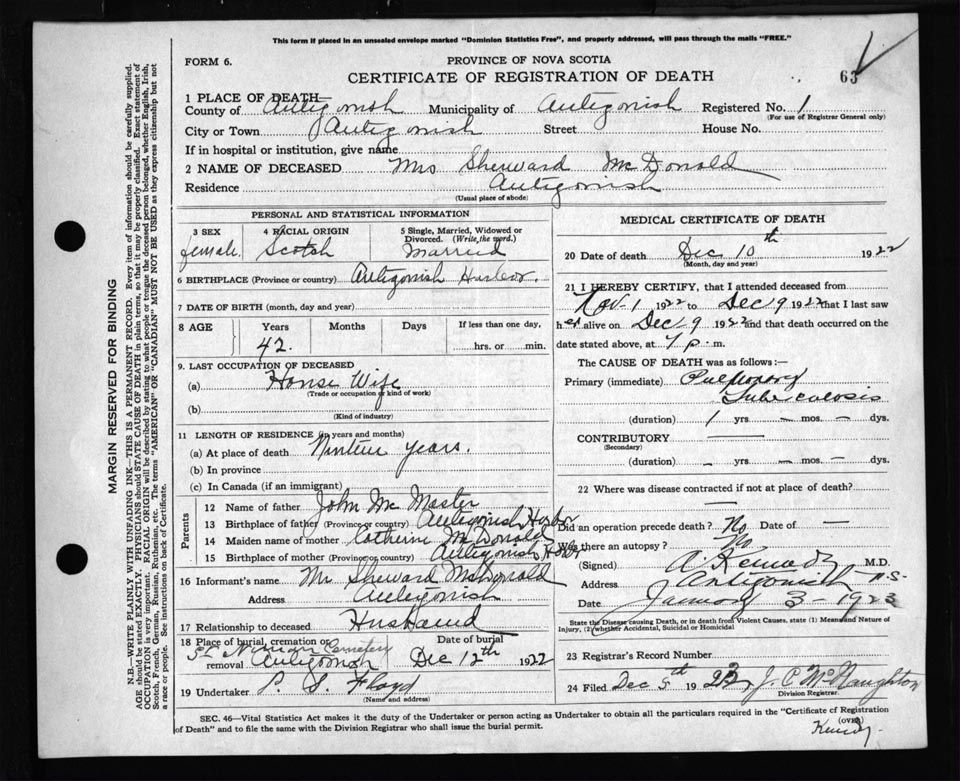 This form if placed in an unsealed envelope marked "Dominion Statistics Free", and properly addressed, will pass through the mails "FREE."
FORM 6.
PROVINCE OF NOVA SCOTIA
CERTIFICATE OF REGISTRATION OF DEATH
63
1 PLACE OF DEATH—
County of Antigonish Municipality of Antigonish Registered No. 1
(For use of Registrar General only)
City or Town Antigonish Street House No.
If in hospital or institution, give name
2 NAME OF DECEASED Mrs Sherward McDonald
Residence Antigonish
(Usual place of abode)
PERSONAL AND STATISTICAL INFORMATION
3 SEX 4 RACIAL ORIGIN 5 Single, Married, Widowed or Divorced. (Write the word.)
female. Scotch Married
6 BIRTHPLACE (Province or country) Antigonish Harbor.
7 DATE OF BIRTH (month, day and year)
8 AGE Years Months Days If less than one day,
42. hrs. or min.
9. LAST OCCUPATION OF DECEASED
(a) House Wife
(Trade or occupation or kind of work)
(b)
(Kind of industry)
11 LENGTH OF RESIDENCE (in years and months)
(a) At place of death Ninteen years.
(b) In province
(c) In Canada (if an immigrant)
Parents
12 Name of father John McMaster
13 Birthplace of father (Province or country) Antigonish Harbor
14 Maiden name of mother Catherine McDonald
15 Birthplace of mother (Province or country) Antigonish Har
16 Informant's name Mr Sherward McDonald
Address Antigonish
17 Relationship to deceased Husband
18 Place of burial, cremation or removal St Ninian Cemetery Antigonish
Date of burial Dec 12th 1922
19 Undertaker P. S. Floyd
(Name and address)
MEDICAL CERTIFICATE OF DEATH
20 Date of death Dec 10th 1922
(Month, day and year)
21 I HEREBY CERTIFY, that I attended deceased from
Nov 1 1922 to Dec 9 1922 that I last saw
her alive on Dec 9 1922 and that death occurred on the
date stated above, at 7 p.m.
The CAUSE OF DEATH was as follows:—
Primary (immediate) Pulmonary
Tuberculosis
(duration) 1 yrs. — mos. — dys.
CONTRIBUTORY —
(Secondary)
(duration) — yrs. — mos. — dys.
22 Where was disease contracted if not at place of death?
—
Did an operation precede death? No Date of —
Was there an autopsy? No
(Signed) A. Kennedy M.D.
Address Antigonish N.S.
Date January 3 - 1923
State the Disease causing Death, or in death from Violent Causes, state (1) Means and Nature of
Injury, (2) whether Accidental, Suicidal or Homicidal
23 Registrar's Record Number
24 Filed Dec 5th 1923 J. C. McNaughton
Division Registrar.
SEC. 46—Vital Statistics Act makes it the duty of the Undertaker or person acting as Undertaker to obtain all the particulars required in the "Certificate of Registration
of Death" and to file the same with the Division Registrar who shall issue the burial permit.
(OVER)
MARGIN RESERVED FOR BINDING
N.B.—WRITE PLAINLY WITH UNFADING INK—THIS IS A PERMANENT RECORD. Every item of information should be carefully supplied.
AGE should be stated EXACTLY. PHYSICIANS should STATE CAUSE OF DEATH in plain terms, so that it may be properly classified. Exact statement of
OCCUPATION is very important. RACIAL ORIGIN will be described by stating to what people or tongue the deceased person belonged, whether English, Irish,
Scotch, French, German, Russian, Ruthenian, etc. The terms "AMERICAN" OR "CANADIAN" MUST NOT BE USED as they express citizenship but not
a race or people. See instructions on back of Certificate.